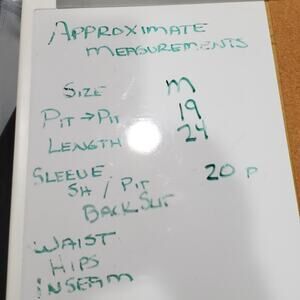 APPROXIMATE
MEASUREMENTS
SIZE M
PIT → PIT 19
LENGTH 24
SLEEVE 20 P
SH / PIT
BACK SLIT
WAIST
HIPS
INSEAM